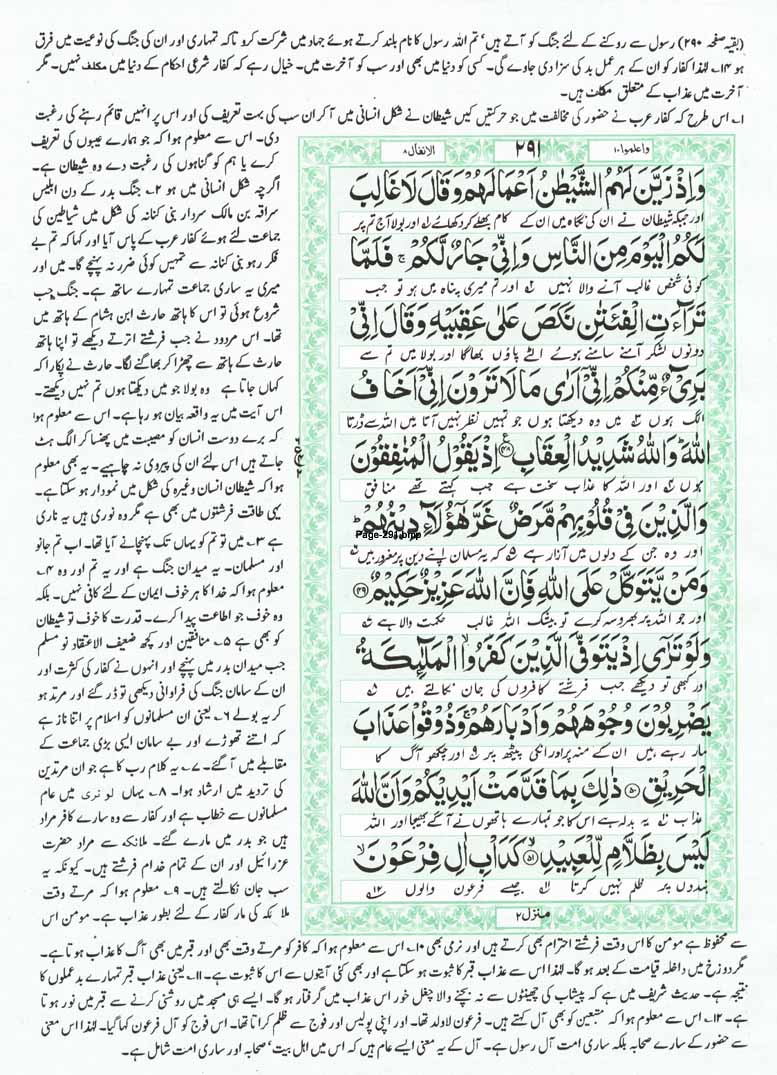 (بقیہ صفحہ ۲۹۰) رسول سے روکنے کے لئے جنگ کو آتے ہیں‘ تم اللہ رسول کا نام بلند کرتے ہوئے جہاد میں شرکت کرو تاکہ تمہاری اور ان کی جنگ کی نوعیت میں فرق
ہو ۱۴؎ لہٰذا کفار کو ان کے ہر عمل بد کی سزا دی جاوے گی۔ کسی کو دنیا میں بھی اور سب کو آخرت میں۔ خیال رہے کہ کفار شرعی احکام کے دنیا میں مکلف نہیں۔ مگر
آخرت میں عذاب کے متعلق مکلف ہیں۔
۱؎ اس طرح کہ کفار عرب نے حضور کی مخالفت میں جو حرکتیں کیں شیطان نے شکل انسانی میں آکر ان سب کی بہت تعریف کی اور اس پر انہیں قائم رہنے کی رغبت
واعلموا۱۰ ۲۹۱ الانفال۸
وَاِذْ زَيَّنَ لَهُمُ الشَّيْطٰنُ اَعْمَالَهُمْ وَقَالَ لَا غَالِبَ
اور جبکہ شیطان نے ان کی نگاہ میں ان کے کام بھلے کر دکھائے ۱؎ اور بولا آج تم پر
لَكُمُ الْيَوْمَ مِنَ النَّاسِ وَاِنِّيْ جَارٌ لَّكُمْ ۚ فَلَمَّا
کوئی شخص غالب آنے والا نہیں ۲؎ اور تم میری پناہ میں ہو تو جب
تَرَآءَتِ الْفِئَتٰنِ نَكَصَ عَلٰى عَقِبَيْهِ وَقَالَ اِنِّيْ
دونوں لشکر آمنے سامنے ہوئے الٹے پاؤں بھاگا اور بولا میں تم سے
بَرِيْٓءٌ مِّنْكُمْ اِنِّيْٓ اَرٰى مَا لَا تَرَوْنَ اِنِّيْٓ اَخَافُ
الگ ہوں میں وہ دیکھتا ہوں جو تمہیں نظر نہیں آتا میں اللہ سے ڈرتا
اللّٰهَ ؕ وَاللّٰهُ شَدِيْدُ الْعِقَابِ ۴۸ اِذْ يَقُوْلُ الْمُنٰفِقُوْنَ
ہوں اور اللہ کا عذاب سخت ہے جب کہتے تھے منافق
وَالَّذِيْنَ فِيْ قُلُوْبِهِمْ مَّرَضٌ غَرَّ هٰٓؤُلَآءِ دِيْنُهُمْ ؕ
Page-291.bmp
اور وہ جن کے دلوں میں آزار ہے ۵؎ کہ یہ مسلمان اپنے دین پر مغرور ہیں ۶؎
وَمَنْ يَّتَوَكَّلْ عَلَى اللّٰهِ فَاِنَّ اللّٰهَ عَزِيْزٌ حَكِيْمٌ ۴۹
اور جو اللہ پر بھروسہ کرے تو بیشک اللہ غالب حکمت والا ہے ۷؎
وَلَوْ تَرٰٓى اِذْ يَتَوَفَّى الَّذِيْنَ كَفَرُوا الْمَلٰٓئِكَةُ
اور کبھی تو دیکھے جب فرشتے کافروں کی جان نکالتے ہیں ۸؎
يَضْرِبُوْنَ وُجُوْهَهُمْ وَاَدْبَارَهُمْ ۚ وَذُوْقُوْا عَذَابَ
مار رہے ہیں ان کے منہ پر اور انکی پیٹھ پر ۹؎ اور چکھو آگ کا
الْحَرِيْقِ ۵۰ ذٰلِكَ بِمَا قَدَّمَتْ اَيْدِيْكُمْ وَاَنَّ اللّٰهَ
عذاب ۱۰؎ یہ بدلہ ہے اس کا جو تمہارے ہاتھوں نے آگے بھیجا اور اللہ
لَيْسَ بِظَلَّامٍ لِّلْعَبِيْدِ ۵۱ كَدَاْبِ اٰلِ فِرْعَوْنَ ۙ
بندوں پر ظلم نہیں کرتا ۱۱؎ جیسے فرعون والوں ۱۲؎
منزل۲
دی۔ اس سے معلوم ہوا کہ جو ہمارے عیبوں کی تعریف
کرے یا ہم کو گناہوں کی رغبت دے وہ شیطان ہے۔
اگرچہ شکل انسانی میں ہو ۲؎ جنگ بدر کے دن ابلیس
سراقہ بن مالک سردار بنی کنانہ کی شکل میں شیاطین کی
جماعت لئے ہوئے کفار عرب کے پاس آیا اور کہا کہ تم بے
فکر رہو بنی کنانہ سے تمہیں کوئی ضرر نہ پہنچے گا۔ میں اور
میری یہ ساری جماعت تمہارے ساتھ ہے۔ جنگ جب
شروع ہوئی تو اس کا ہاتھ حارث ابن ہشام کے ہاتھ میں
تھا۔ اس مردود نے جب فرشتے اترتے دیکھے تو اپنا ہاتھ
حارث کے ہاتھ سے چھڑا کر بھاگنے لگا۔ حارث نے پکارا کہ
کہاں جاتا ہے وہ بولا جو میں دیکھتا ہوں تم نہیں دیکھتے۔
اس آیت میں یہ واقعہ بیان ہو رہا ہے۔ اس سے معلوم ہوا
کہ برے دوست انسان کو مصیبت میں پھنسا کر الگ ہٹ
جاتے ہیں اس لئے ان کی پیروی نہ چاہیے۔ یہ بھی معلوم
ہوا کہ شیطان انسان وغیرہ کی شکل میں نمودار ہو سکتا ہے۔
یہی طاقت فرشتوں میں بھی ہے مگر وہ نوری ہیں یہ ناری
ہے ۳؎ میں تو تم کو یہاں تک پہنچانے آیا تھا۔ اب تم جانو
اور مسلمان۔ یہ میدان جنگ ہے اور یہ تم اور وہ ۴؎
معلوم ہوا کہ خدا کا ہر خوف ایمان کے لئے کافی نہیں۔ بلکہ
وہ خوف جو اطاعت پیدا کرے۔ قدرت کا خوف تو شیطان
کو بھی ہے ۵؎ منافقین اور کچھ ضعیف الاعتقاد نو مسلم
جب میدان بدر میں پہنچے اور انہوں نے کفار کی کثرت اور
ان کے سامان جنگ کی فراوانی دیکھی تو ڈر گئے اور مرتد ہو
کر یہ بولے ۶؎ یعنی ان مسلمانوں کو اسلام پر اتنا ناز ہے
کہ اتنے تھوڑے اور بے سامان ایسی بڑی جماعت کے
مقابلے میں آگئے۔ ۷؎ یہ کلام رب کا ہے جو ان مرتدین
کی تردید میں ارشاد ہوا۔ ۸؎ یہاں لوتری میں عام
مسلمانوں سے خطاب ہے اور کفار سے وہ سارے کافر مراد
ہیں جو بدر میں مارے گئے۔ ملائکہ سے مراد حضرت
عزرائیل اور ان کے تمام خدام فرشتے ہیں۔ کیونکہ یہ
سب جان نکالتے ہیں۔ ۹؎ معلوم ہوا کہ مرتے وقت
ملائکہ کی مار کفار کے لئے بطور عذاب ہے۔ مومن اس
سے محفوظ ہے مومن کا اس وقت فرشتے احترام بھی کرتے ہیں اور نرمی بھی ۱۰؎ اس سے معلوم ہوا کہ کافر کو مرتے وقت بھی اور قبر میں بھی آگ کا عذاب ہوتا ہے۔
مگر دوزخ میں داخلہ قیامت کے بعد ہو گا۔ لہٰذا اس سے عذاب قبر کا ثبوت ہو سکتا ہے اور بھی کئی آیتوں سے اس کا ثبوت ہے۔ ۱۱؎ یعنی عذاب قبر تمہارے بدعملوں کا
نتیجہ ہے۔ حدیث شریف میں ہے کہ پیشاب کی چھینٹوں سے نہ بچنے والا چغل خور اس عذاب میں گرفتار ہو گا۔ ایسے ہی مسجد میں روشنی کرنے سے قبر میں نور ہوتا
ہے۔ ۱۲؎ اس سے معلوم ہوا کہ متبعین کو بھی آل کہتے ہیں۔ فرعون لاولد تھا۔ اور اپنی پولیس اور فوج سے ظلم کراتا تھا۔ اس فوج کو آل فرعون کہا گیا۔ لہٰذا اس معنی
سے حضور کے سارے صحابہ بلکہ ساری امت آل رسول ہے۔ آل کے یہ معنی ایسے عام ہیں کہ اس میں اہل بیت‘ صحابہ اور ساری امت شامل ہے۔